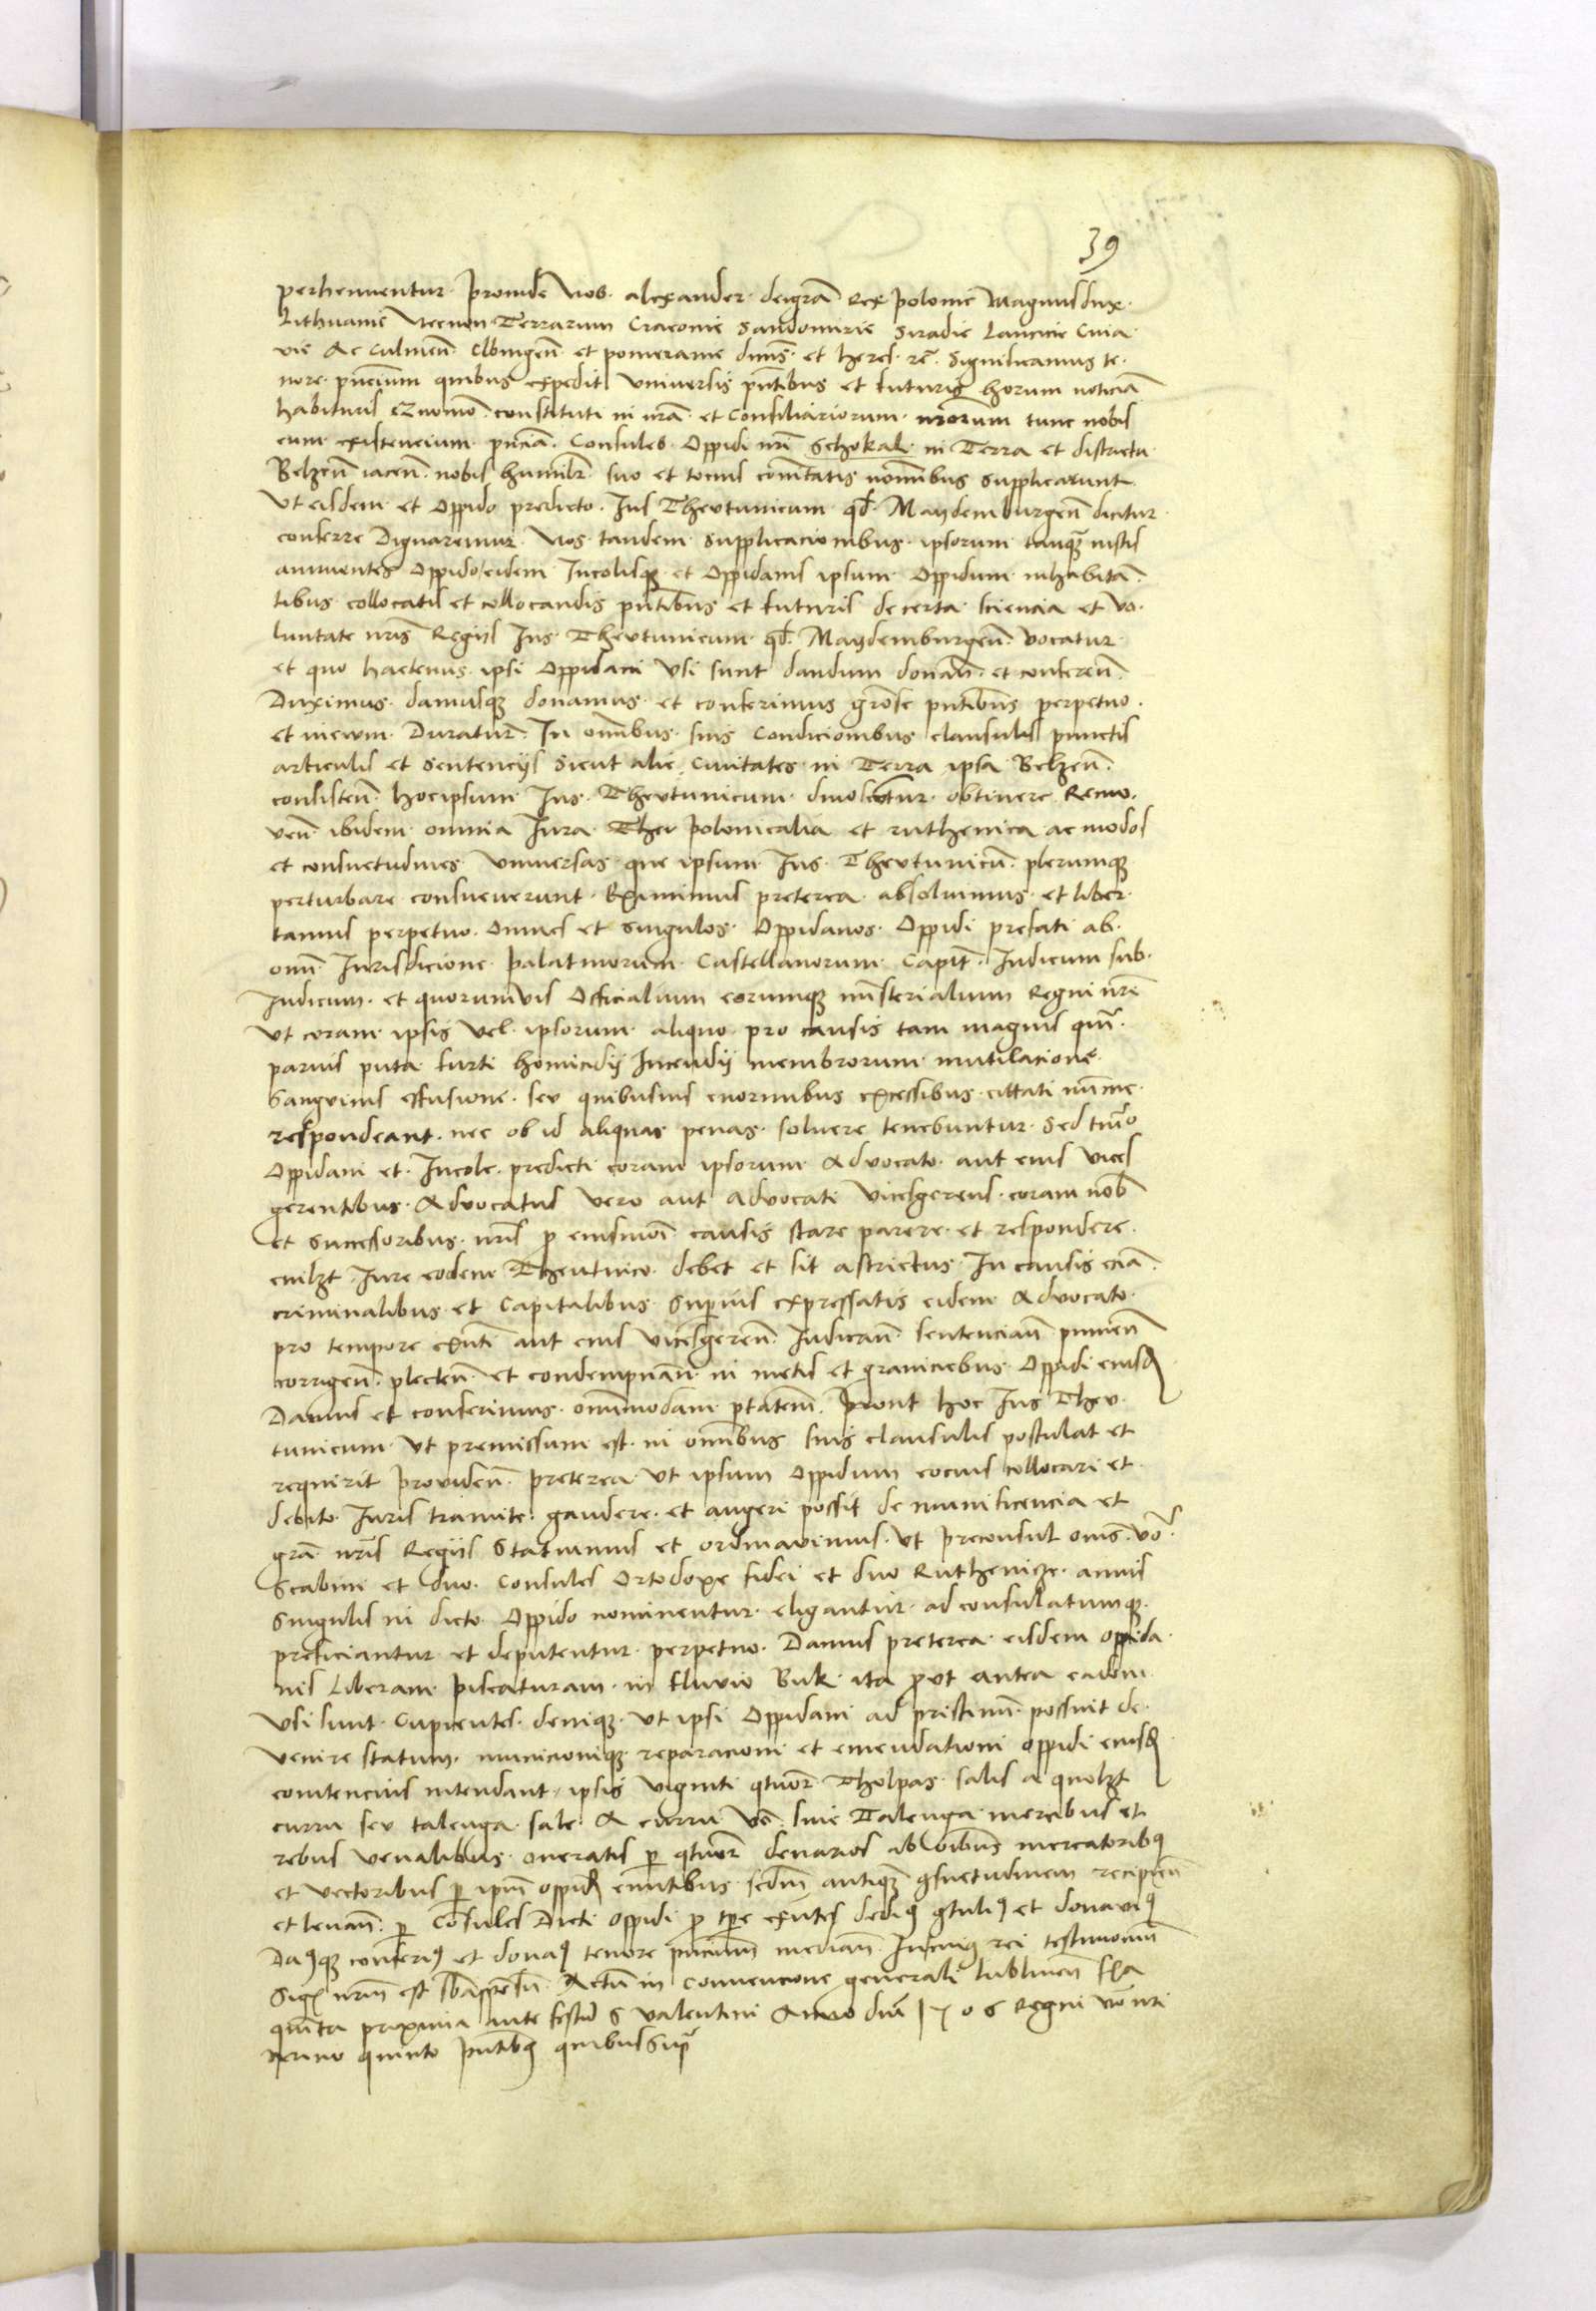 39
perhennentur. Proinde Nos. Alexander. deigrã Rex Polonie Magnus dux.
Lithuanie Necnon Terrarum Cracouie Sandomirie Siradie Lancicie Cuia
uie Ac Culmeñ. Elbingeñ. et pomeranie dnũs. et heres. rẽ. Significamus te.
nore. pñcium quibus expedit Vniuersis pñtibus et futuris horum noticiã
habituris quomõ. constituti in nrã. et Consiliariorum. nrorum tunc nobis
cum existencium. pñciã. Consules. Oppidi nrĩ Schokal. in Terra et districtu
Belzeñ iaceñ. nobis humilr̃. suo et tocius cõmitatis nomĩbus supplicarunt
Vt eisdem. et Oppido predicto. Jus Thewtunicum. qđ. Maydemburgeñ dicitur
conferre Dignaremur. Nos. tandem. supplicacionibus. ipsorum tanquã iustis
annuentes Oppido eidem Incolisq; et Oppidanis ipsum. Oppidum inhabitã.
tibus collocatis et collocandis pñtibus et futuris de certa. sciencia et vo.
luntate nris Regiis Jus. Thewtunicum. qđ. Maydemburgeñ. vocatur
et quo hactenus. ipsi Oppidani Vsi sunt dandum donañ. et confereñ.
Duximus. damusq; donamus. et conferimus grõse pñtibus perpetuo.
et in ewm. Duraturũ. In omĩbus. suis Condicionibus clausulis punctis
articulis et sentencijs sicut alie. Ciuitates in Terra ipsa Belzeñ.
consisteñ. hocipsum Jus. Thewtunicum. dinoscũtur. obtinere. Remo.
ueñ. ibidem. omnia Jura. Thew polonicalia et ruthenica ac modos
et consuetudines Vniuersas que ipsum. Jus. Thewtunicũ. plerumq;
perturbare consueuerunt. Eximimus preterea. absoluimus. et liber.
tamus perpetuo. Omnes et singulos. Oppidanos. Oppidi prefati ab.
omĩ Jurisdicione. palatinorum. Castellanorum. Capit̃. Judicum sub.
Judicum. et quorumvis Officialium eorumq; mĩsterialium Regni nrĩ
Vt coram. ipsis Vel. ipsorum. aliquo. pro causis tam magnis qum̃.
paruis puta. furti homicidij Incendij membrorum. mutilacione
Sanguinis effusione. seu quibusuis enormibus excessibus. cittati mĩme.
respondeant. nec ob id aliquas penas. soluere tenebuntur. Sed tm̃o
Oppidani et. Incole. predicti coram ipsorum Aduocato. aut eius vices
gerentibus. Aduocatus vero aut aduocati Vicesgerens. coram nob̃
et Successoribus. nris p eiusmõi causis stare parere. et respondere.
cuilz̃t Jure eodem Theutunico. debet et sit astrictus. In causis eciã.
criminalibus. et Capitalibus. Superius expressatis eidem Aduocato
pro tempore exñti aut eius vicesgereñ. Judicañ. sentenciañ punieñ
corrigeñ. plecteñ. et condempnañ. in metis et graniciebus. Oppidi eiusđ
Damus et conferimus. omĩmodam. ptatem̃. Prout hoc Jus Thew.
tunicum. Vt premissum est. in omĩbus suis clausulis postulat et
requirit prouideñ. preterea. Vt ipsum Oppidum eocius collocari et
debito. Juris tramite. gaudere. et augeri possit de munificencia et
grã. nris Regiis Statuimus et ordinauimus. Vt preconsul omĩs. võ.
Scabini et duo. Consules Ortodoxe fidei et duo Rutheniche. annis
Singulis in dicto. Oppido nominentur. eligantur. ad consulatumq;.
preficiantur. et deputentur. perpetuo. Damus preterea. eisdem oppida
nis Liberam piscaturam. in fluuio Buk. ita prout antea eadem.
Vsi sunt. Cupientes. deniq;. Vt ipsi Oppidani ad pristinũ possint de.
uenire statum. municioniq; reparacioni et emendationi oppidi eiusđ
comtencius intendant. ipsis viginti qtuor. Tholpas salis a quolz̃t
curru seu talenga. sale. A curru võ. siue Talenga mercibus et
rebus venalibus. oneratis p qtuor denarios ab oibus mercatoribq
et vectoribus p ipm̃ oppiđ eũntibus. scdm̃ antiquã gsuetudinem recipieñ
et leuañ. p Cõsules Dicti oppidi p tp̃e exñtes dediq gtuliq et donauiq
Daqq; conferiq et donaq tenore pñcium mediañ. In cuiq rei testimoniũ
Sigl̃ nrm̃ est sb̃appensũ. Actũ in Conuencione generali lublineñ fr̃a
quĩta proxima ante festũ S valentini Anno dnĩ 1506 Regni vo nri
Anno quinto pñtibq quibus Supra